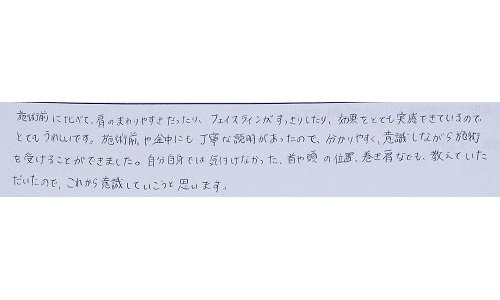 施術前に比べて、肩のまわりやすさだったり、フェイスラインがすっきりしたり、効果をとても実感できているので
とてもうれしいです。施術前や途中にも丁寧な説明があったので、分かりやすく、意識しながら施術
を受けることができました。自分自身では気付けなかった、首や頭の位置、巻き肩なども、教えていた
だいたので、これから意識していこうと思います。